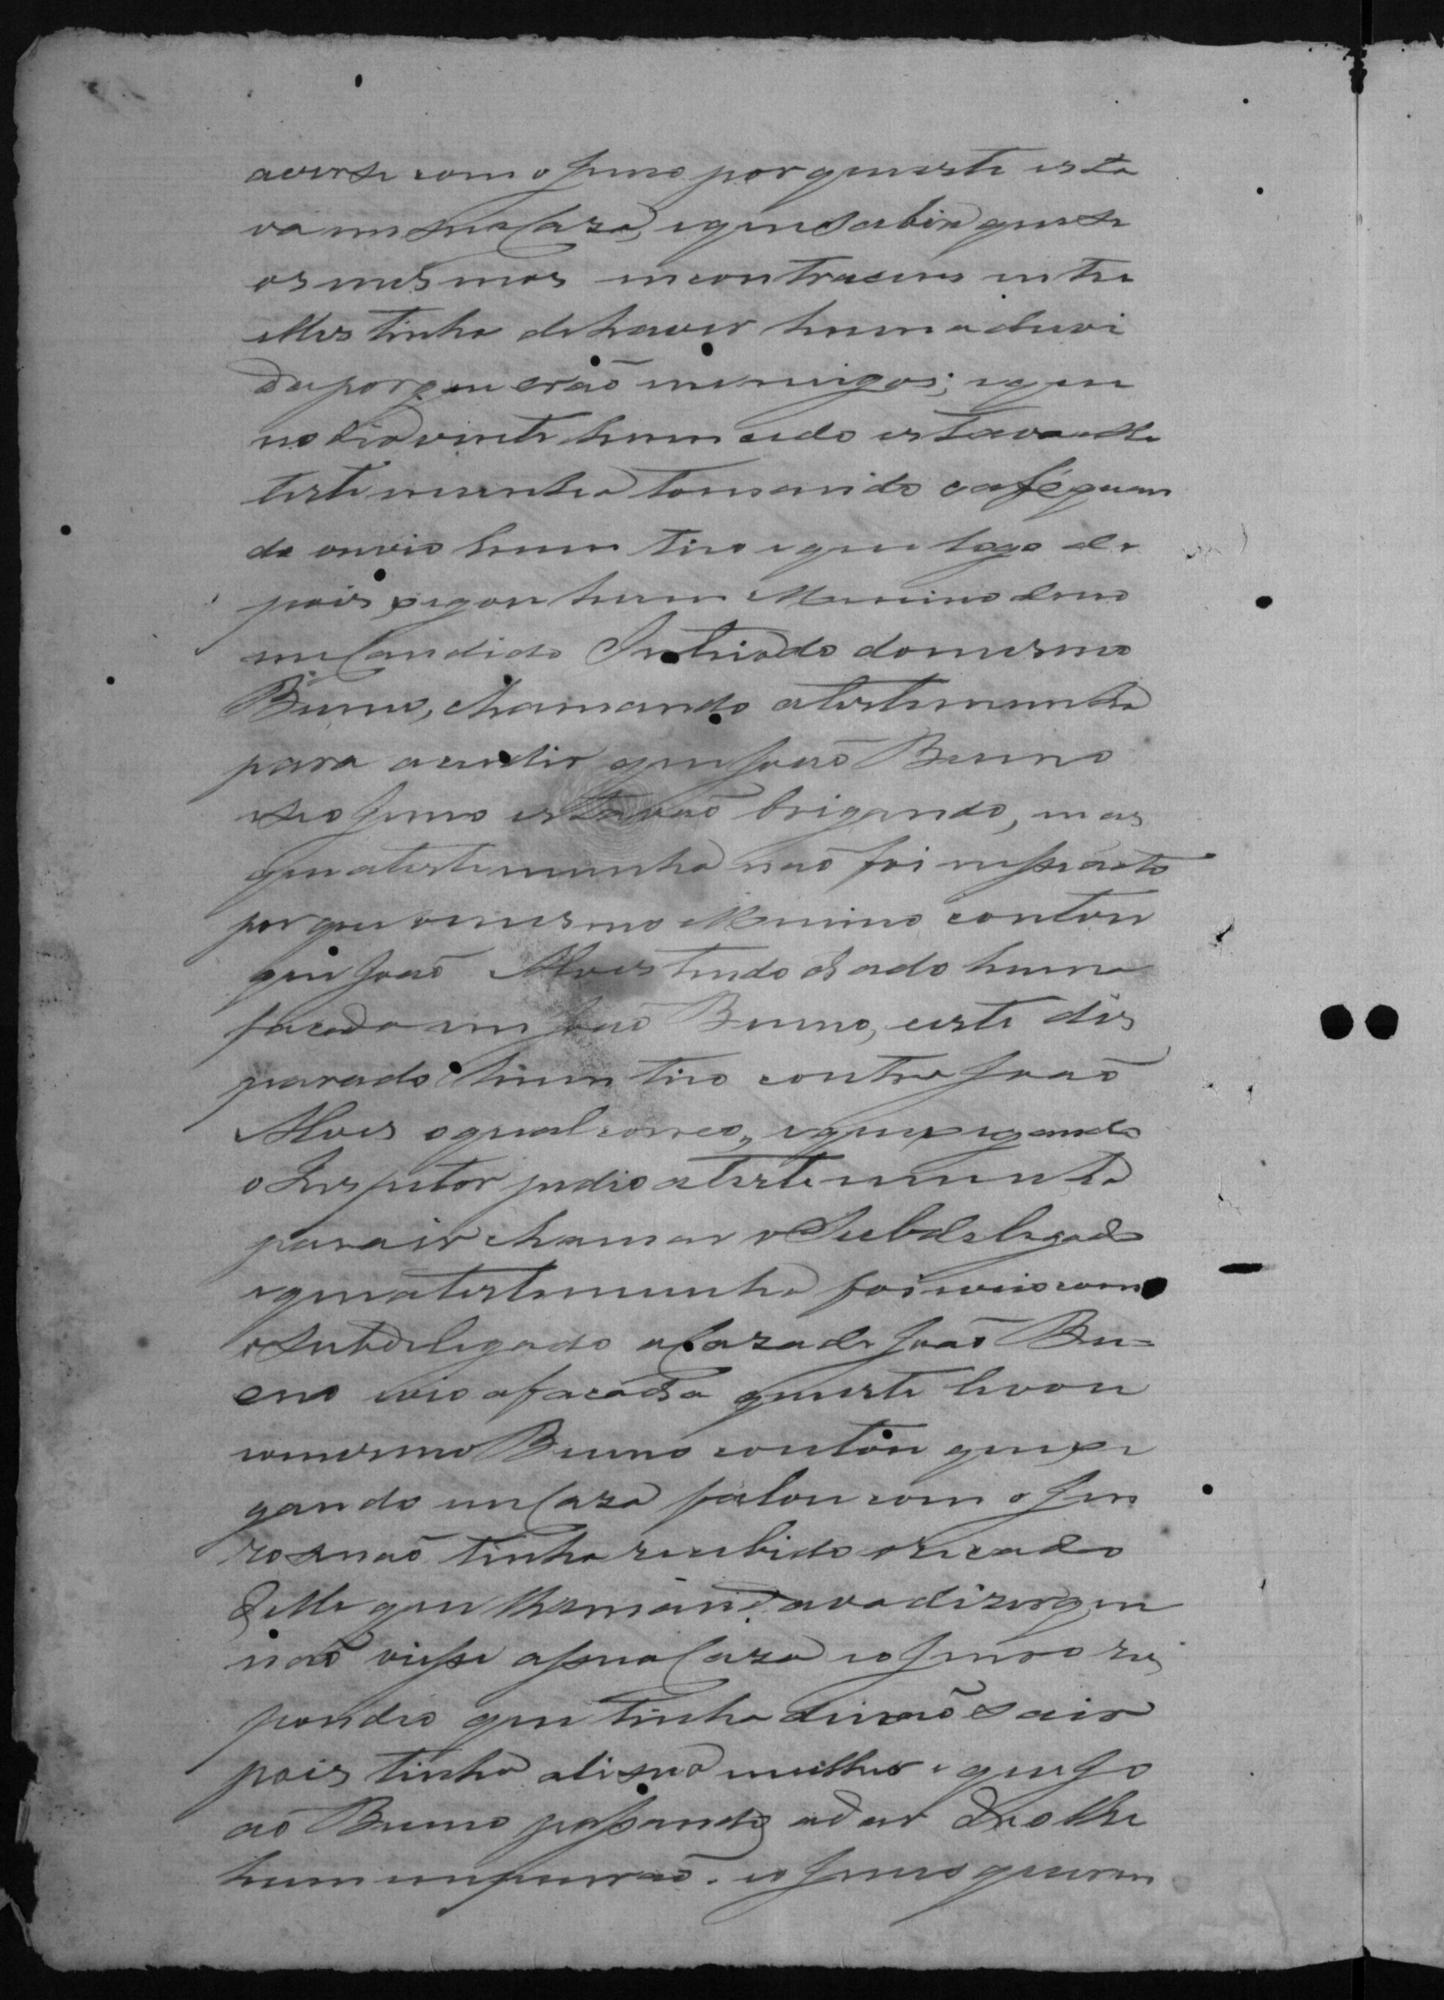 averse com o Genro por que este esta
va em sua Caza, e que sabia que se
os mesmos incontracem entre
elles tinha de haver huma duvi
da por que erão inimigos; e que
no dia vinte hum cedo estava elle
testemunha tomando café quan
do ouvio hum tiro e que logo de
pois xegou hum Menino de no
me Candido Intiado do mesmo
Bueno, chamando a testemunha
para acudir que João Bueno
e seo Genro estavão brigando, mas
que a testemunha não foi nesse acto
por que o mesmo Menino contou
que João Alves tendo dado huma
facada em João Bueno, e este dis
parado hum tiro contra João
Alves o qual correo, e que xegando
o Inspetor pedio a testemunha
para ir chamar o Subdelegado
e que a testemunha foi e veio com
o Subdelegado a Caza de João Bu=
eno e vio a facada que este levou
e o mesmo Bueno contou que xe
gando em Caza falou com o Gen
ro se não tinha recebido o recado
delle que lhe mandava dizer que
não viesse a sua Caza e o Genro res
pondeo que tinha de não sair
pois tinha ali sua mulher e que Jo
ão Bueno passando a dar deo lhe
hum impurrão. e o Genro quiren